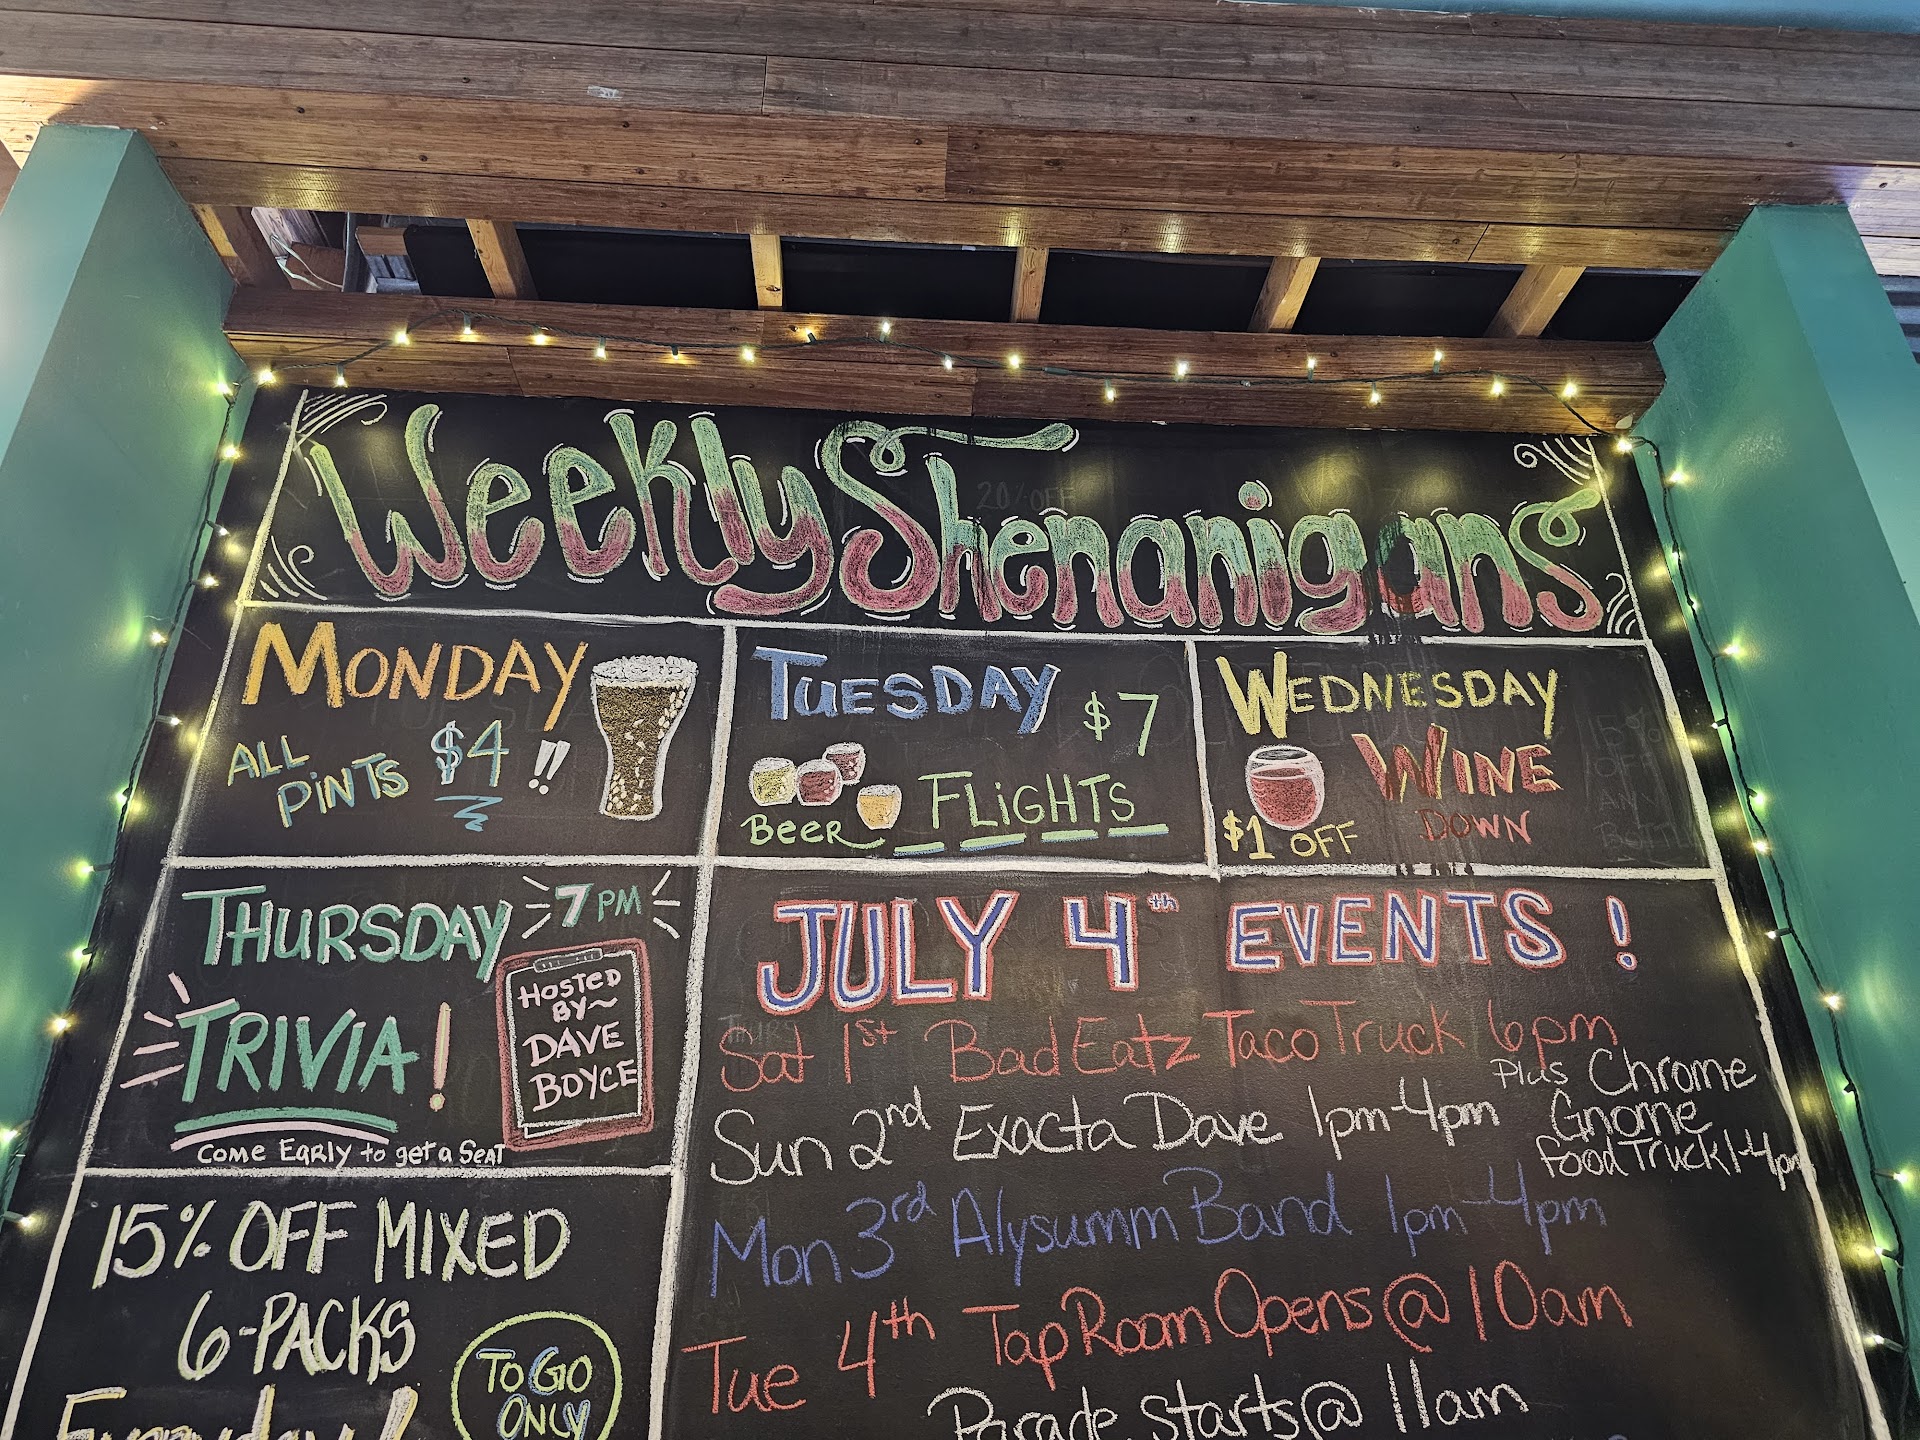 Weekly Shenanigans
MONDAY
ALL PINTS $4 !!
TUESDAY
$7
BEER FLiGHTS
WEDNESDAY
WINE
DOWN
$1 OFF
THURSDAY 7PM
TRIViA!
HOSTED
BY~
DAVE
BOYCE
COME EARLY to get a SEAT
JULY 4th EVENTS!
Sat 1st Bad Eatz Taco Truck 6pm
Sun 2nd Exacta Dave 1pm-4pm
Plus Chrome
Gnome
Food Truck 1-4pm
Mon 3rd Alysumm Band 1pm-4pm
Tue 4th Tap Room Opens @ 10am
Parade Starts @ 11am
15% OFF MIXED
6-PACKS
Everyday!
TO GO
ONLY